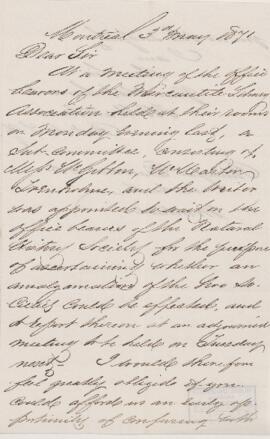 Montreal 3rd May 1871
Dear Sir
At a meeting of the Office
bearers of the Mercantile Library
Association held at their rooms
on Monday evening last, a
Sub-Committee, consisting of
Mess
Trenholme, and the writer
was appointed to wait on the
office bearers of the Natural
History Society for the purpose
of ascertaining whether an
amalgamation of the two So-
cieties could be effected, and
to report thereon at an adjourned
meeting to be held on Tuesday
next- I would therefore
feel greatly obliged if you
could afford us an early op-
portunity of conferring with